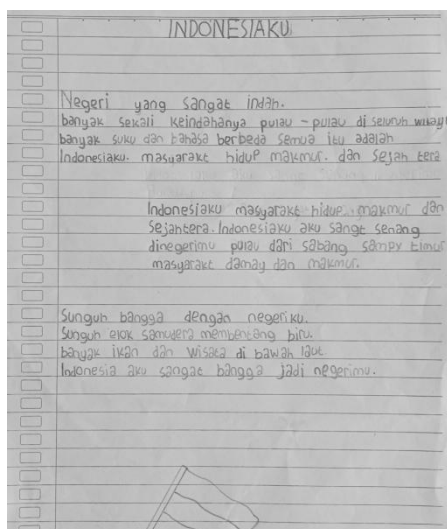 INDONESIAKU
Negeri yang sangat indah.
banyak sekali keindahanya pulau - pulau di seluruh wilayah
banyak suku dan bahasa berbeda semua itu adalah
Indonesiaku. masyarakt hidup makmur. dan Sejah tera
Indonesiaku masyarakt hidup. makmur dan
Sejahtera. Indonesiaku aku sangt senang
dinegerimu pulau dari sabang sampy timur
masyarakt damay dan makmur.
Sunguh bangga dengan negeriku.
Sunguh elok samudera membentang biru.
banyak ikan dan wisata di bawah laut
Indonesia aku sangat bangga jadi negerimu.